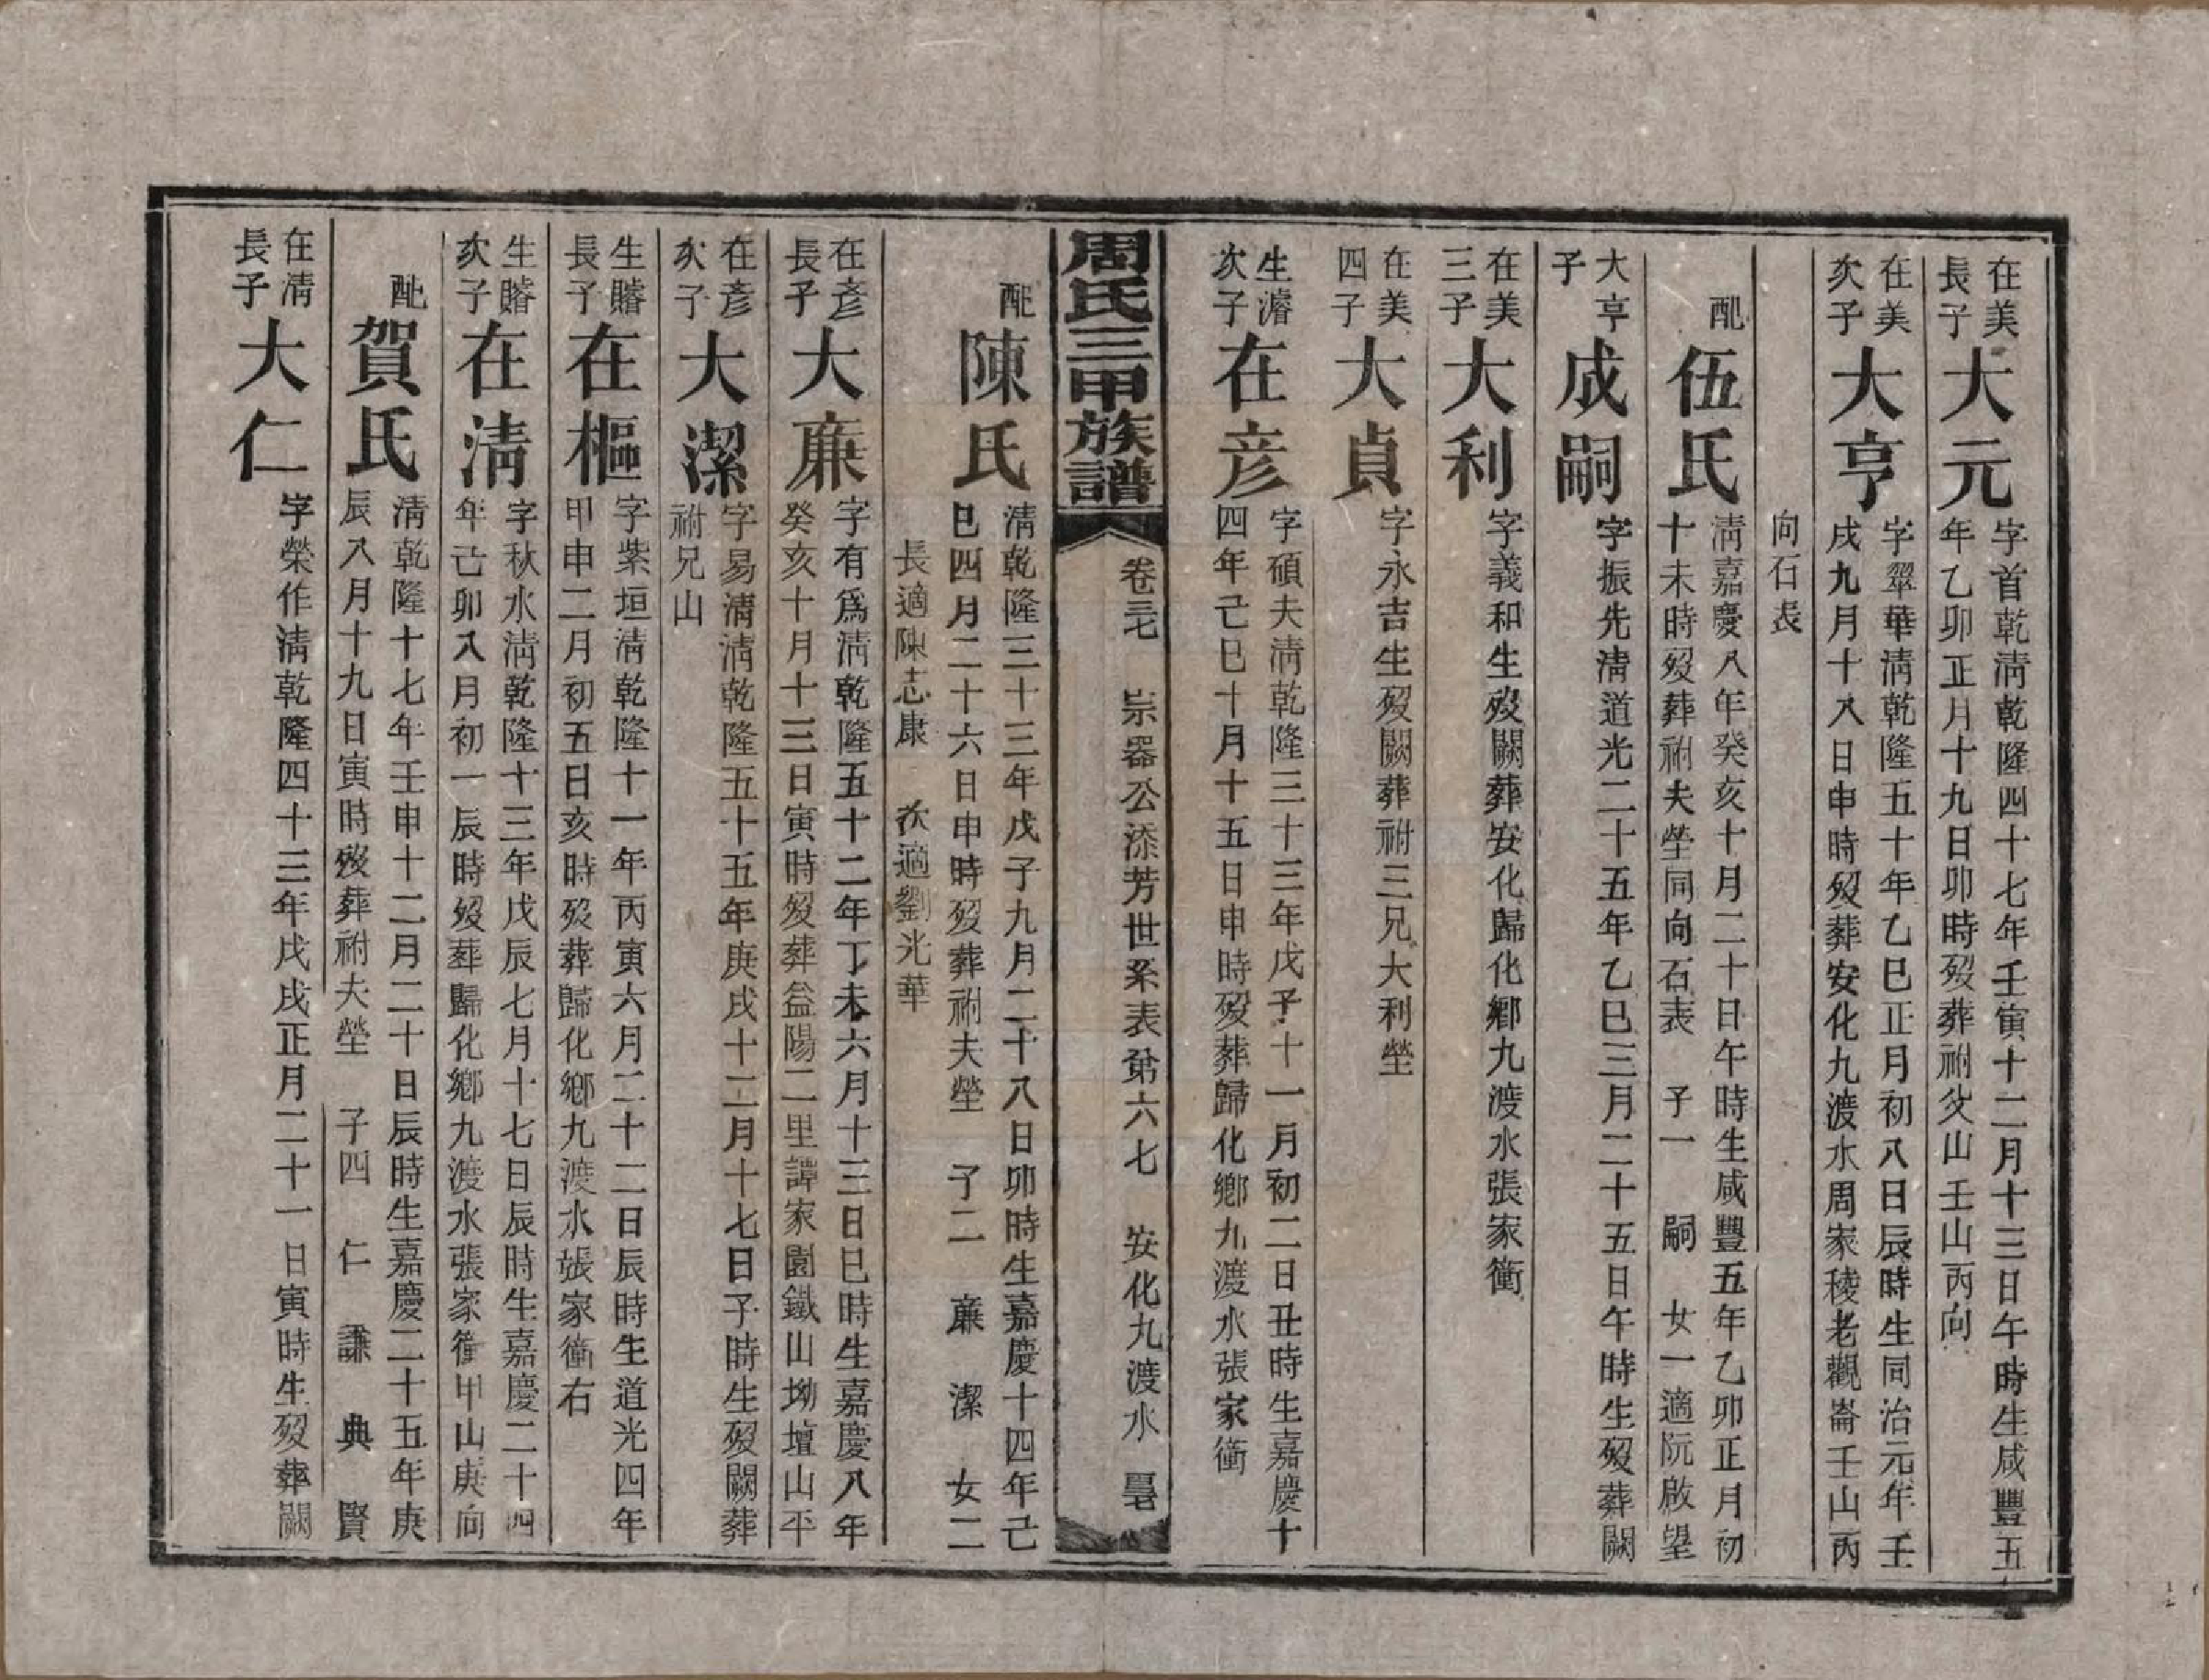 在美
長子
大元
字首乾淸乾隆四十七年壬寅十二月十三日午時生咸豐五
年乙卯正月十九日卯時歿葬祔父山壬山丙向
在美
次子
大亨
字翠華淸乾隆五十年乙巳正月初八日辰時生同治元年壬
戌九月十八日申時歿葬安化九渡水周家稜老觀崙壬山丙
向石表
配
伍氏
淸嘉慶八年癸亥十月二十日午時生咸豐五年乙卯正月初
十未時歿葬祔夫塋同向石表 子一 嗣 女一適阮啟望
大亨
子
成嗣
字振先淸道光二十五年乙巳三月二十五日午時生歿葬闕
在美
三子
大利
字義和生歿闕葬安化歸化鄉九渡水張家衝
在美
四子
大貞
字永吉生歿闕葬祔三兄大利塋
生濬
次子
在彥
字碩夫淸乾隆三十三年戊子十一月初二日丑時生嘉慶十
四年己巳十月十五日申時歿葬歸化鄉九渡水張家衝
周氏三甲族譜
卷三七 崇器公添芳世系表第六七 安化九渡水
配
陳氏
淸乾隆三十三年戊子九月二十八日卯時生嘉慶十四年己
巳四月二十六日申時歿葬祔夫塋 子二 廉 潔 女二
長適陳志康 次適劉光華
在彥
長子
大廉
字有爲淸乾隆五十二年丁未六月十三日巳時生嘉慶八年
癸亥十月十三日寅時歿葬益陽二里譚家園鐵山坳壇山平
在彥
次子
大潔
字易淸淸乾隆五十五年庚戌十二月十七日子時生歿闕葬
祔兄山
生賰
長子
在樞
字紫垣淸乾隆十一年丙寅六月二十二日辰時生道光四年
甲申二月初五日亥時歿葬歸化鄉九渡水張家衝右
生賰
次子
在淸
字秋水淸乾隆十三年戊辰七月十七日辰時生嘉慶二十四
年己卯八月初一辰時歿葬歸化鄉九渡水張家衝甲山庚向
配
賀氏
淸乾隆十七年壬申十二月二十日辰時生嘉慶二十五年庚
辰八月十九日寅時歿葬祔夫塋 子四 仁 謙 典 賢
在淸
長子
大仁
字榮作淸乾隆四十三年戊戌正月二十一日寅時生歿葬闕